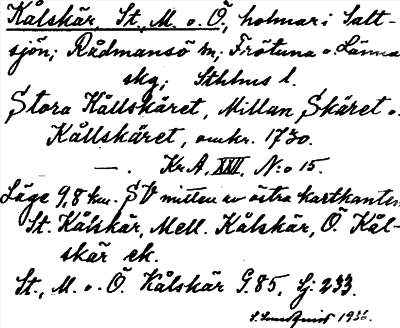 Kålskär, St., M. o. Ö., holmar i Salt-
sjön; Rådmansö sn, Frötuna o Länna
skg; Sthlms l.
Stora Kållskäret, Mellan Skäret o.
Kållskäret, omkr. 1730.
— . Kr.A, XXVI, N:o 15.
Läge 9,8 km. SV mitten av östra kartkanten
St. Kålskär, Mell. Kålskär, Ö. Kål-
skär ek.
St., M. o. Ö. Kålskär G. 85, Sj: 233.
S. Lundquist 1936.